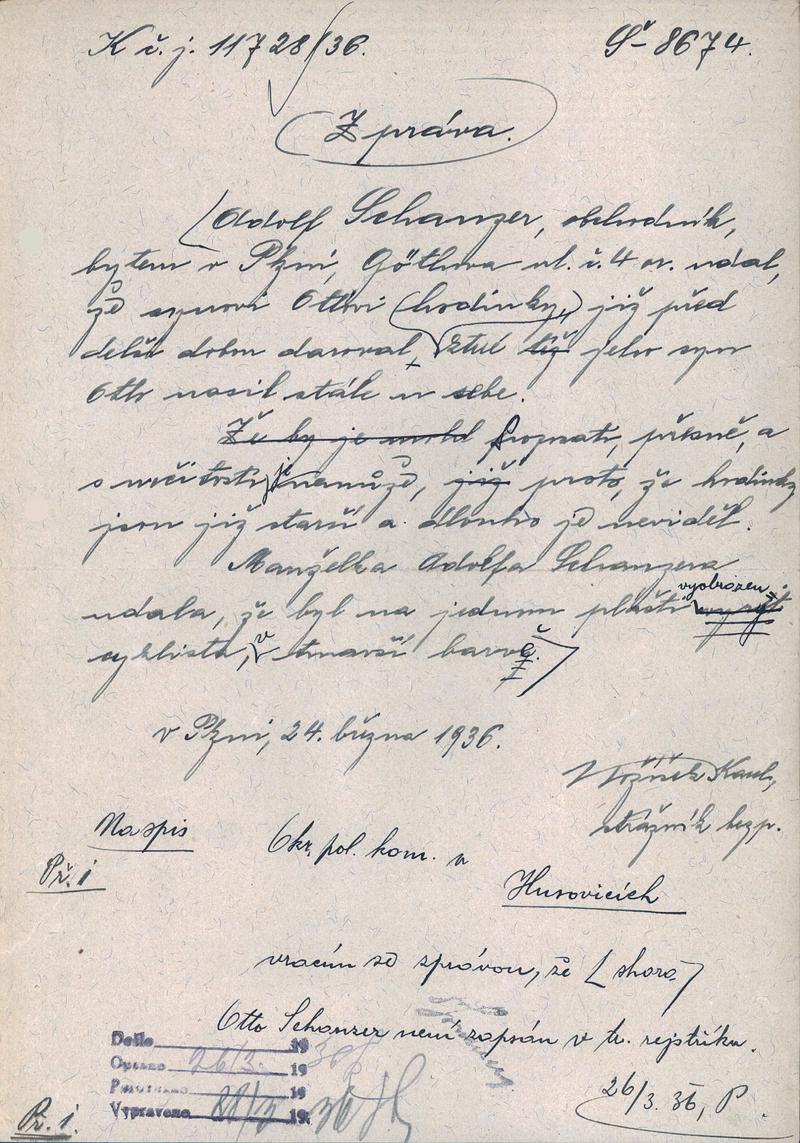 K č. j. 11728/36. Š-8674.
Zpráva.
Adolf Schanzer, obchodník,
bytem v Plzni, Göthova ul. č. 4 or. udal,
že synovi Ottovi hodinky, již před
delší dobou daroval, jeho syn
Otto nosil stále u sebe.
Že by je mohl popsati, přesně, a
s určitostí je nemůže, již proto, že hodinky
jsou již starší a dlouho je neviděl.
Manželka Adolfa Schanzera
udala, že byl na jednom plášti vyobrazen
cyklista, v tmavší barvě.
v Plzni, 24. března 1936.
Karel,
strážník bezp.
Na spis
Př. 1
Okr. pol. kom. v
Husovicích
vracím se zprávou, že [shora]
Otto Schanzer není zapsán v tr. rejstříku.
Došlo 19
26/3. 19 36
19
Vypraveno 19
26/3. 36, P.
Př. 1.